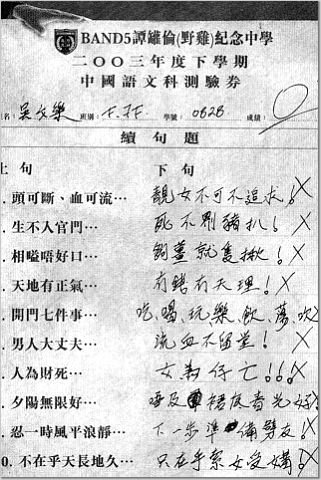 BAND5譚鎚倫(野雞)紀念中學
二〇〇三年度下學期
中國語文科測驗券
姓名: 吳文樂 班別: F.7F. 學號: 0626 成績: 0
續句題
上句 下句
. 頭可斷、血可流… 靚女不可不追求! X
. 生不入官門… 死不則豬扒! X
. 相嗌唔好口… 就隻揪! X
. 天地有正氣… 有錢有天理! X
. 開門七件事… 吃、喝、玩、樂、飲、蕩、吹
. 男人大丈夫… 流血不留 ! X
. 人為財死… 女為仔亡!!! X
. 夕陽無限好… 唔及裙底春光好! X
. 忍一時風平浪靜… 下一步準備劈友! X
0. 不在乎天長地久… 只在乎索女受媾! X